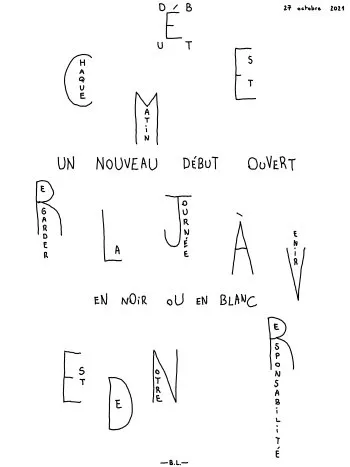 27 octobre 2021
DÉBUT
CHAQUE MATIN EST
UN NOUVEAU DÉBUT OUVERT
REGARDER LA JOURNÉE À VENIR
EN NOIR OU EN BLANC
EST DE NOTRE RESPONSABILITÉ
—B.L.—